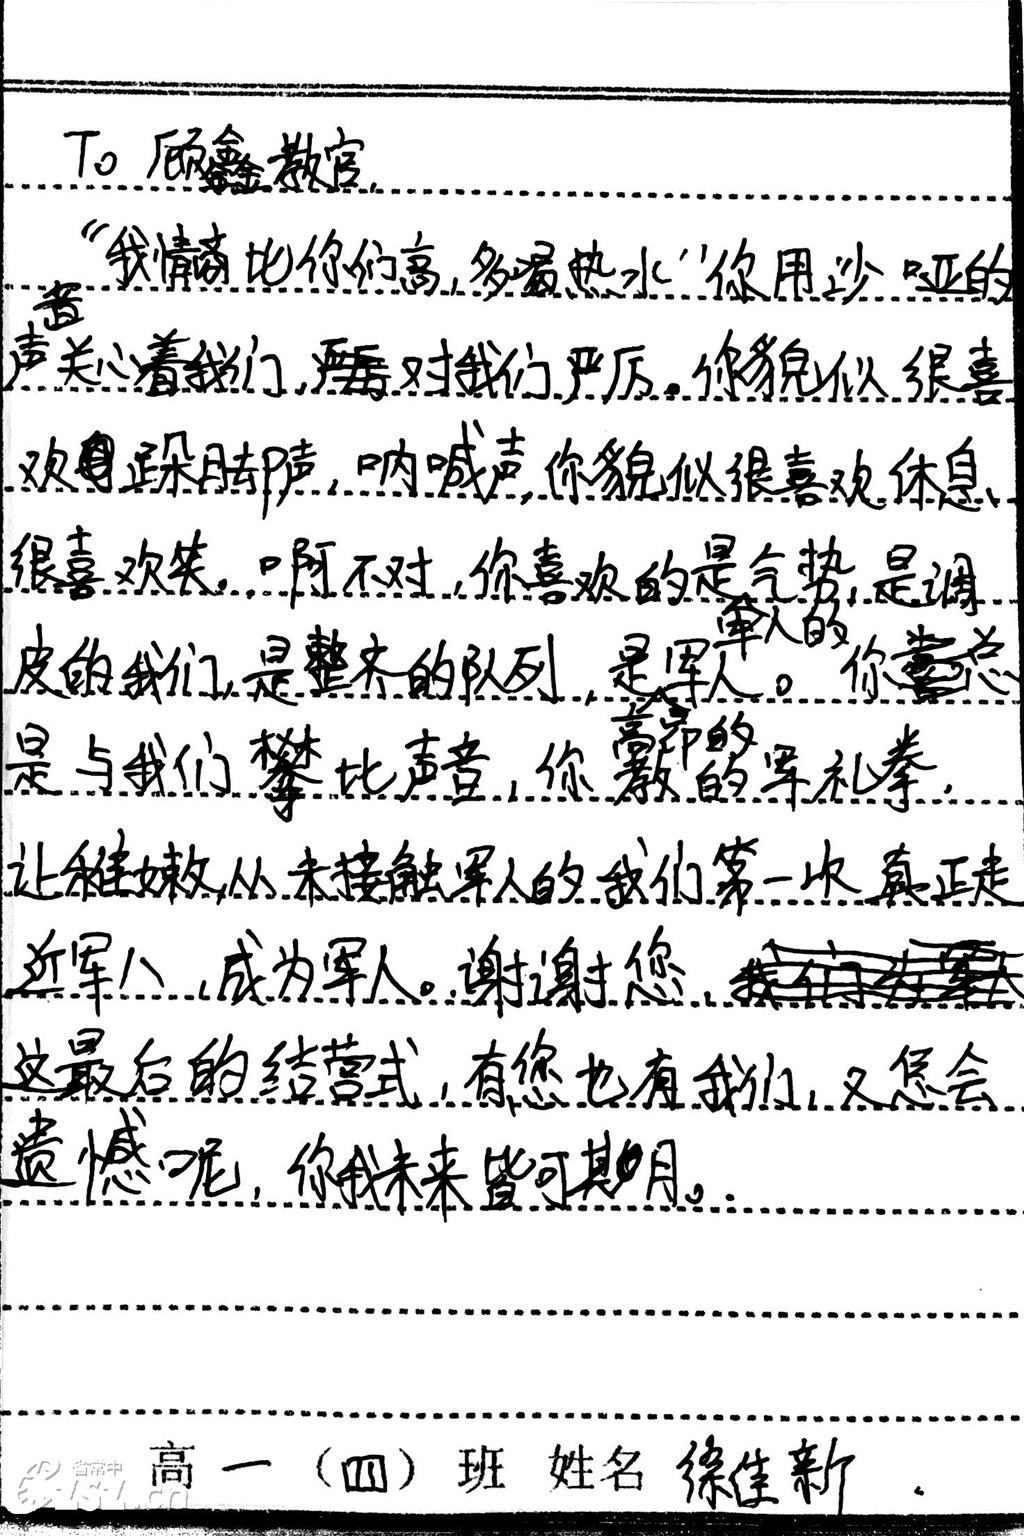 To 顾鑫教官
“我情商比你们高,多漏热水”你用沙哑的
声音关心着我们,对我们严厉。你貌似很喜
欢跺脚声,呐喊声,你貌似很喜欢休息、
很喜欢笑。啊不对,你喜欢的是气势,是调
皮的我们,是整齐的队列,是军人的军人。你总
是与我们攀比声音,你高昂的的军礼拳,
让稚嫩,从未接触军人的我们第一次真正走
近军人,成为军人。谢谢您,
这最后的结营式,有您也有我们,又怎会
遗憾呢,你我未来皆可期。
高一(四)班 姓名 徐佳新
省常中